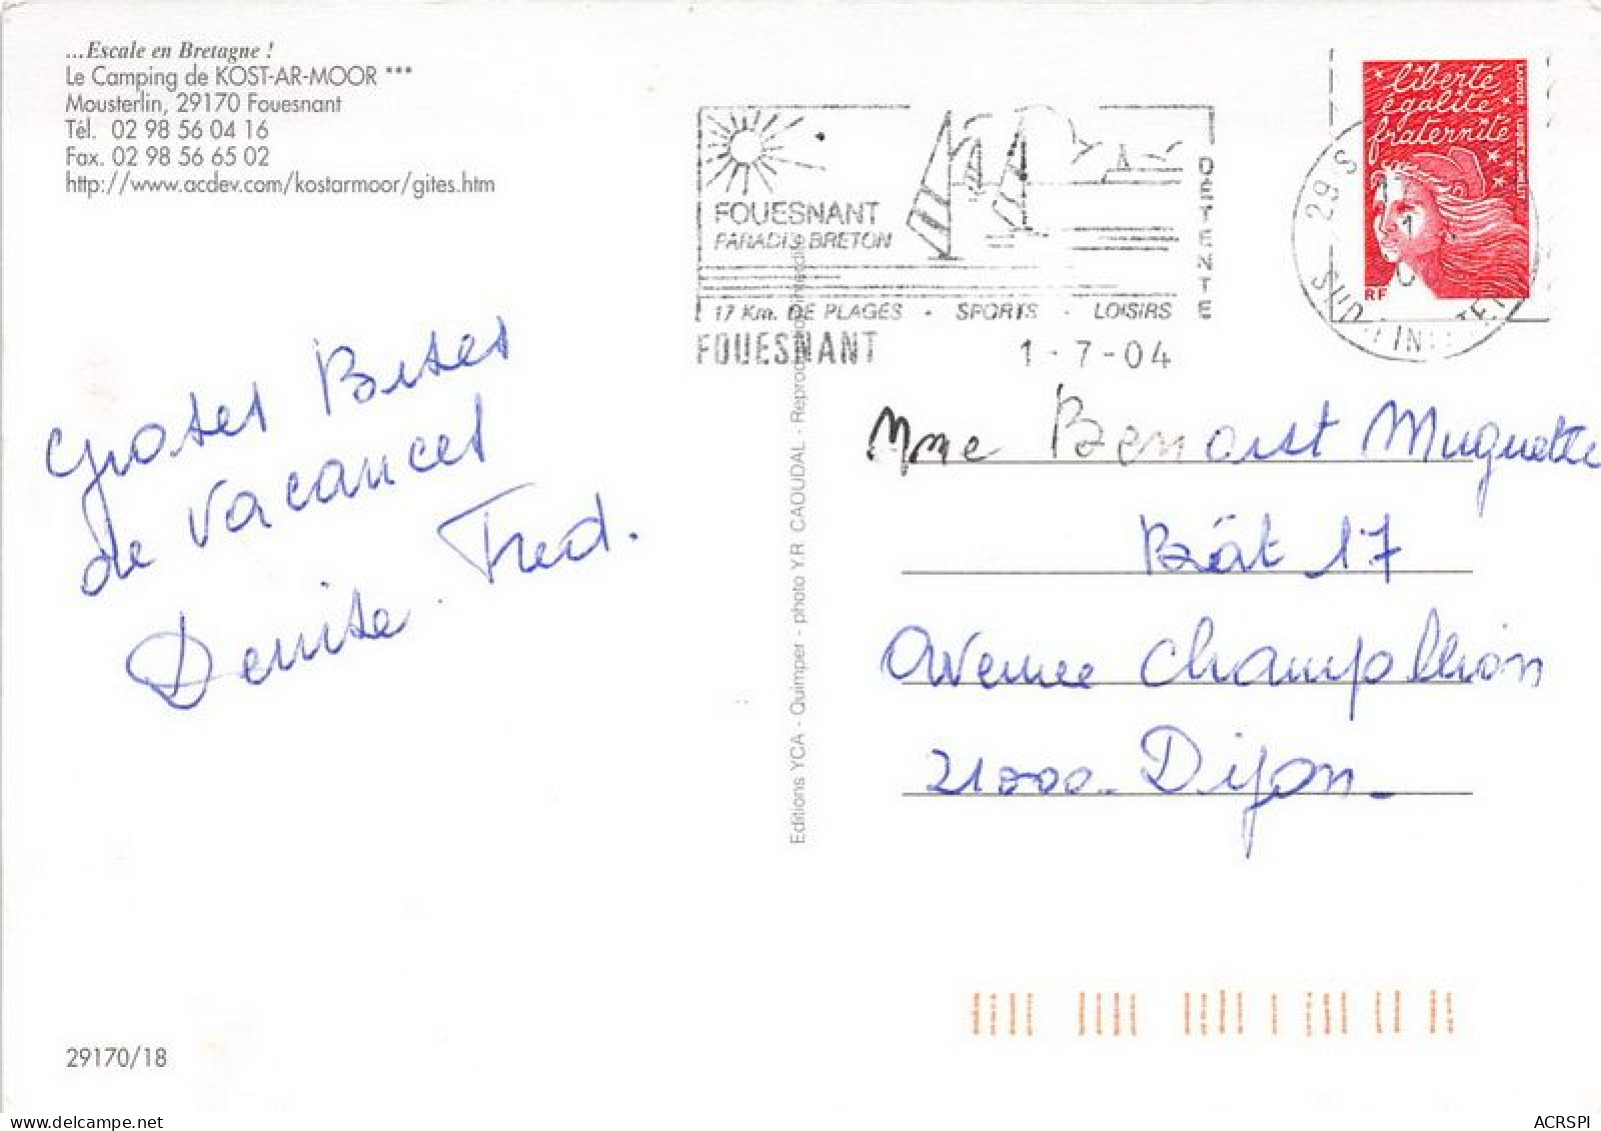 ...Escale en Bretagne !
Le Camping de KOST-AR-MOOR ***
Mousterlin, 29170 Fouesnant
Tél. 02 98 56 04 16
Fax. 02 98 56 65 02
http://www.acdev.com/kostarmoor/gites.htm
FOUESNANT
PARADIS BRETON
DETENTE
17 Km. DE PLAGES - SPORTS - LOISIRS
FOUESNANT 1-7-04
liberté
égalité
fraternité
RF
LA POSTE
29 S
Groses Bises
de vacances
Denise. Fred.
Editions YCA - Quimper - photo Y.R CAOUDAL - Reproduction interdite
Mme Benoist Muguette
Bât 17
Avenue Champollion
21000 - Dijon -
29170/18
www.delcampe.net
ACRSPI